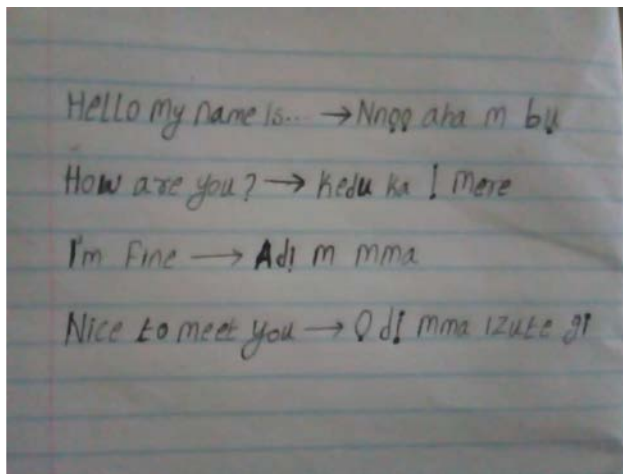 Hello my name is... → Nnọọ aha m bụ
How are you? → Kedu ka Ị mere
I'm Fine → Adị m mma
Nice to meet you → Ọ dị mma izute gị